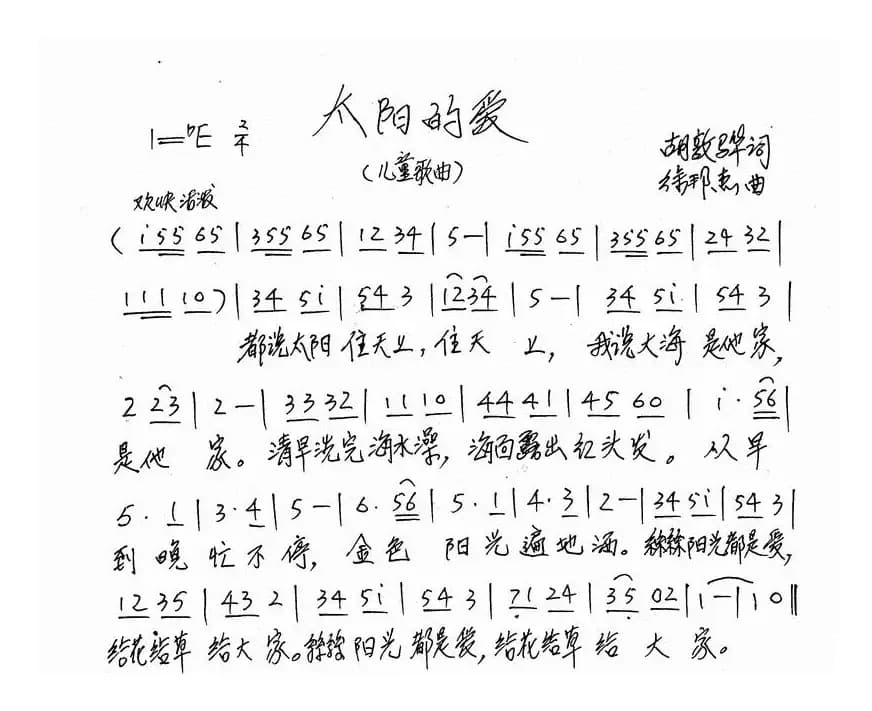 太阳的爱
1=♭E 2/4
(儿童歌曲)
胡敦骅词
徐邦杰曲
欢快活泼
( i55 65 | 355 65 | 12 34 | 5 — | i55 65 | 355 65 | 24 32 |
111 10 ) | 34 5i | 54 3 | 12 34 | 5 — | 34 5i | 54 3 |
都说太阳 住天上, 住天 上, 我说大海 是他家,
2 23 | 2 — | 33 32 | 11 10 | 44 41 | 45 60 | i · 56 |
是他 家。清早洗完海水澡, 海面露出红头发。从早
5 · 1 | 3 · 4 | 5 — | 6 · 56 | 5 · 1 | 4 · 3 | 2 — | 34 5i | 54 3 |
到晚 忙不停, 金色 阳光遍地洒。丝丝阳光都是爱,
12 35 | 43 2 | 34 5i | 54 3 | 71 24 | 35 02 | 1 — | 1 0 ‖
给花给草 给大家。丝丝阳光 都是爱, 给花给草 给 大 家。